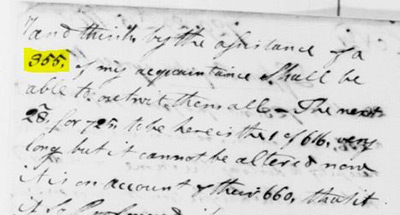 I and think by the assistance of a
355. of my acquaintance Shall be
able to outwit them all. The next
28. for 725. to be here is the 1 of 616. very
long but it cannot be altered now
it is on account of their 660. that it
is so